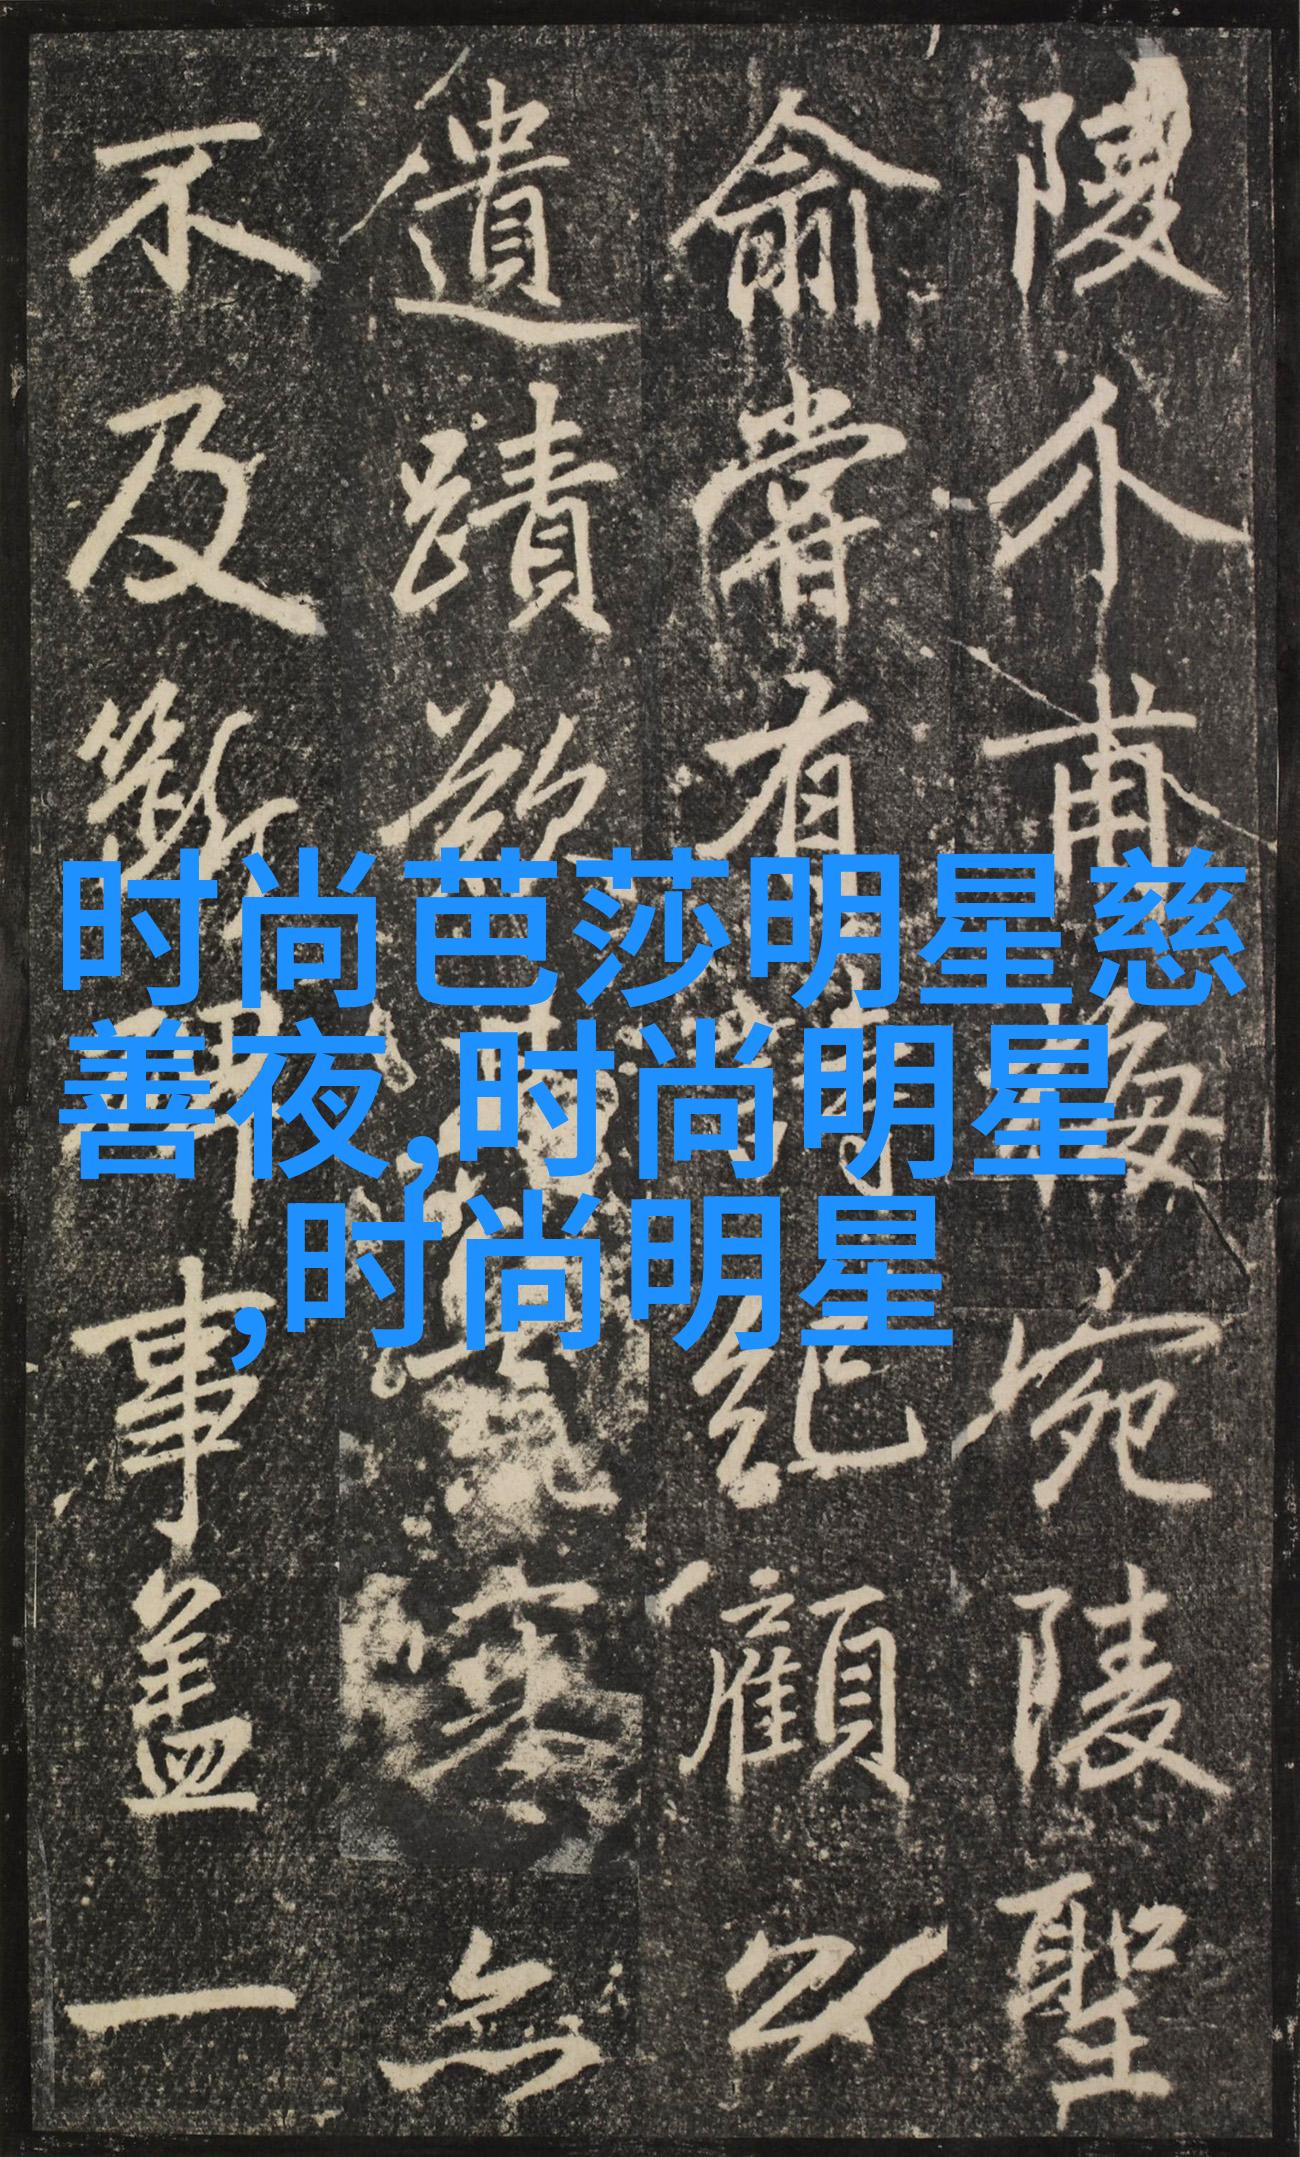 时尚芭莎明星慈
善夜,时尚明星
,时尚明星
陵介甫梅宛陵聖
俞嘗有詩紀顧以
遺蹟欲無
不及斷事蓋一